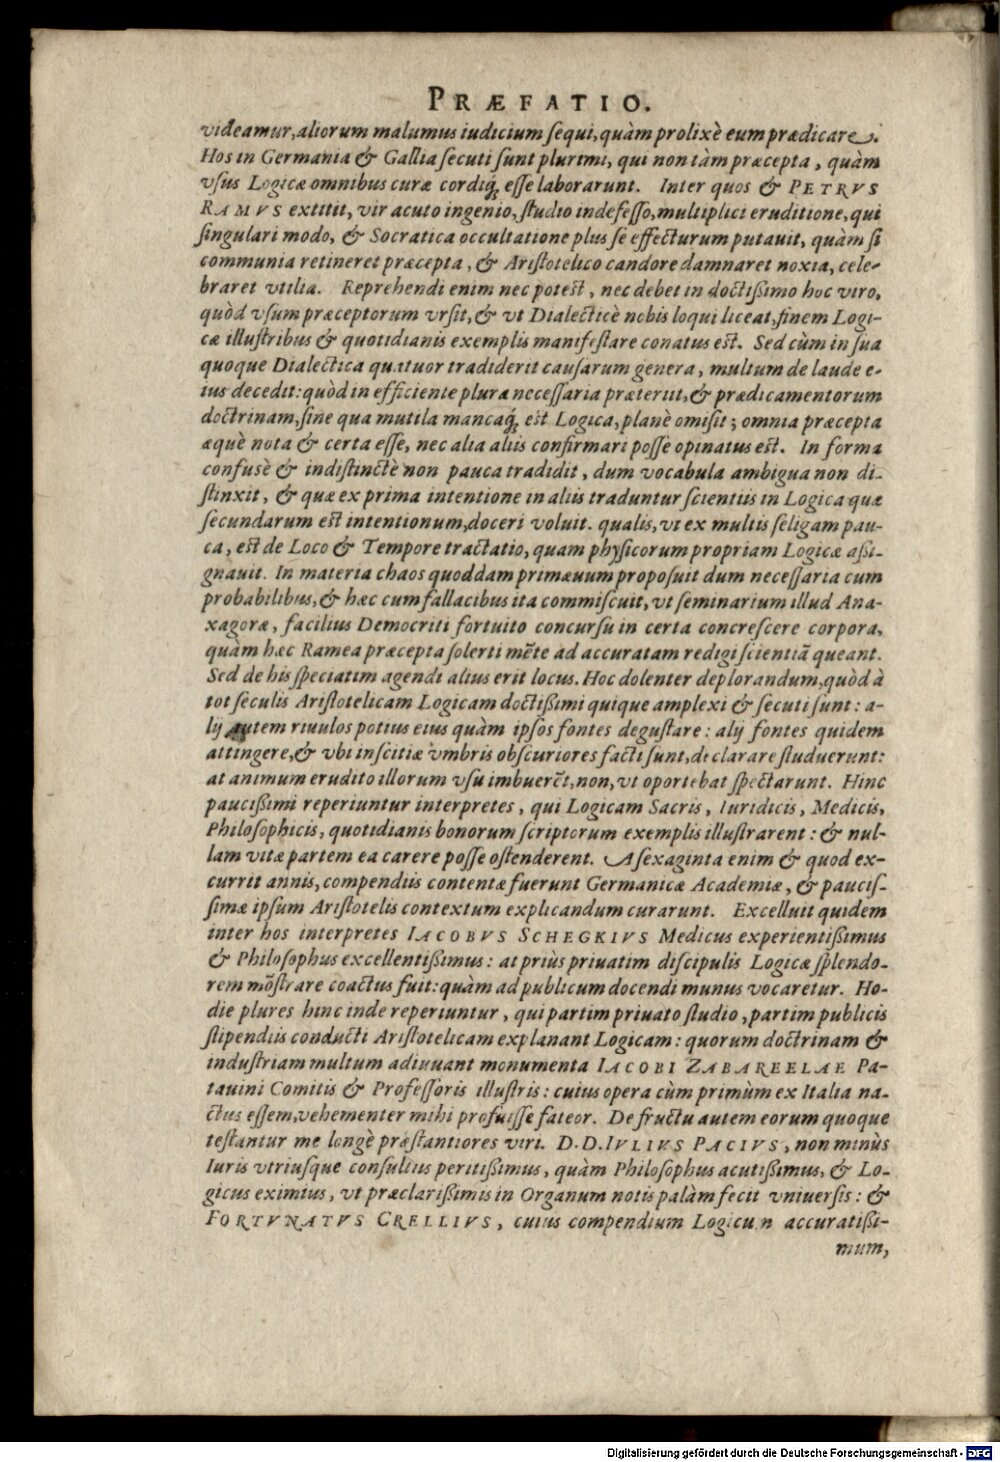 PRÆFATIO.
videamur, aliorum malumus iudicium ſequi, quàm prolixè eum prædicare.
Hos in Germania & Gallia ſecuti ſunt plurimi, qui non tàm præcepta, quàm
vſus Logicæ omnibus curæ cordiq́; eſſe laborarunt. Inter quos & PETRVS
RAMVS extitit, vir acuto ingenio, ſtudio indefeſſo, multiplici eruditione, qui
ſingulari modo, & Socratica occultatione plus ſe effecturum putauit, quàm ſi
communia retineret præcepta, & Ariſtotelico candore damnaret noxia, cele-
braret vtilia. Reprehendi enim nec poteſt, nec debet in doctißimo hoc viro,
quòd vſum præceptorum vrſit, & vt Dialecticè nobis loqui liceat, finem Logi-
cæ illuſtribus & quotidianis exemplis manifeſtare conatus eſt. Sed cùm in ſua
quoque Dialectica quatuor tradiderit cauſarum genera, multum de laude e-
ius decedit: quòd in efficiente plura neceſſaria præterijt, & prædicamentorum
doctrinam, ſine qua mutila mancaq́; eſt Logica, planè omiſit; omnia præcepta
æquè nota & certa eſſe, nec alia aliis confirmari poſſe opinatus eſt. In forma
confuſè & indiſtinctè non pauca tradidit, dum vocabula ambigua non di-
ſtinxit, & quæ ex prima intentione in aliis traduntur ſcientiis in Logica quæ
ſecundarum eſt intentionum, doceri voluit. qualis, vt ex multis ſeligam pau-
ca, eſt de Loco & Tempore tractatio, quam phyſicorum propriam Logicæ aßi-
gnauit. In materia chaos quoddam primæuum propoſuit dum neceſſaria cum
probabilibus, & hæc cum fallacibus ita commiſcuit, vt ſeminarium illud Ana-
xagoræ, facilius Democriti fortuito concurſu in certa concreſcere corpora,
quàm hæc Ramea præcepta ſolerti mẽte ad accuratam redigi ſcientiã queant.
Sed de his ſpeciatim agendi alius erit locus. Hoc dolenter deplorandum, quòd à
tot ſeculis Ariſtotelicam Logicam doctißimi quique amplexi & ſecuti ſunt: a-
lij autem riuulos potius eius quàm ipſos fontes deguſtare: alij fontes quidem
attingere, & vbi inſcitiæ vmbris obſcuriores facti ſunt, declarare ſtuduerunt:
at animum erudito illorum vſu imbuerẽt, non, vt oportebat ſpectarunt. Hinc
paucißimi reperiuntur interpretes, qui Logicam Sacris, Iuridicis, Medicis,
Philoſophicis, quotidianis bonorum ſcriptorum exemplis illuſtrarent: & nul-
lam vitæ partem ea carere poſſe oſtenderent. A ſexaginta enim & quod ex-
currit annis, compendiis contentæ fuerunt Germanicæ Academiæ, & pauciſ-
ſimæ ipſum Ariſtotelis contextum explicandum curarunt. Excelluit quidem
inter hos interpretes IACOBVS SCHEGKIVS Medicus experientißimus
& Philoſophus excellentißimus: at priùs priuatim diſcipulis Logicæ ſplendo-
rem mõſtrare coactus fuit: quàm ad publicum docendi munus vocaretur. Ho-
die plures hinc inde reperiuntur, qui partim priuato ſtudio, partim publicis
ſtipendiis conducti Ariſtotelicam explanant Logicam: quorum doctrinam &
induſtriam multum adiuuant monumenta IACOBI ZABAREELAE Pa-
tauini Comitis & Profeſſoris illuſtris: cuius opera cùm primùm ex Italia na-
ctus eſſem, vehementer mihi profuiſſe fateor. De fructu autem eorum quoque
teſtantur me longè præſtantiores viri. D. D. IVLIVS PACIVS, non minùs
Iuris vtriuſque conſultus peritißimus, quàm Philoſophus acutißimus, & Lo-
gicus eximius, vt præclarißimis in Organum notis palàm fecit vniuerſis: &
FORTVNATVS CRELLIVS, cuius compendium Logicum accuratißi-
mum,
Digitalisierung gefördert durch die Deutsche Forschungsgemeinschaft - DFG